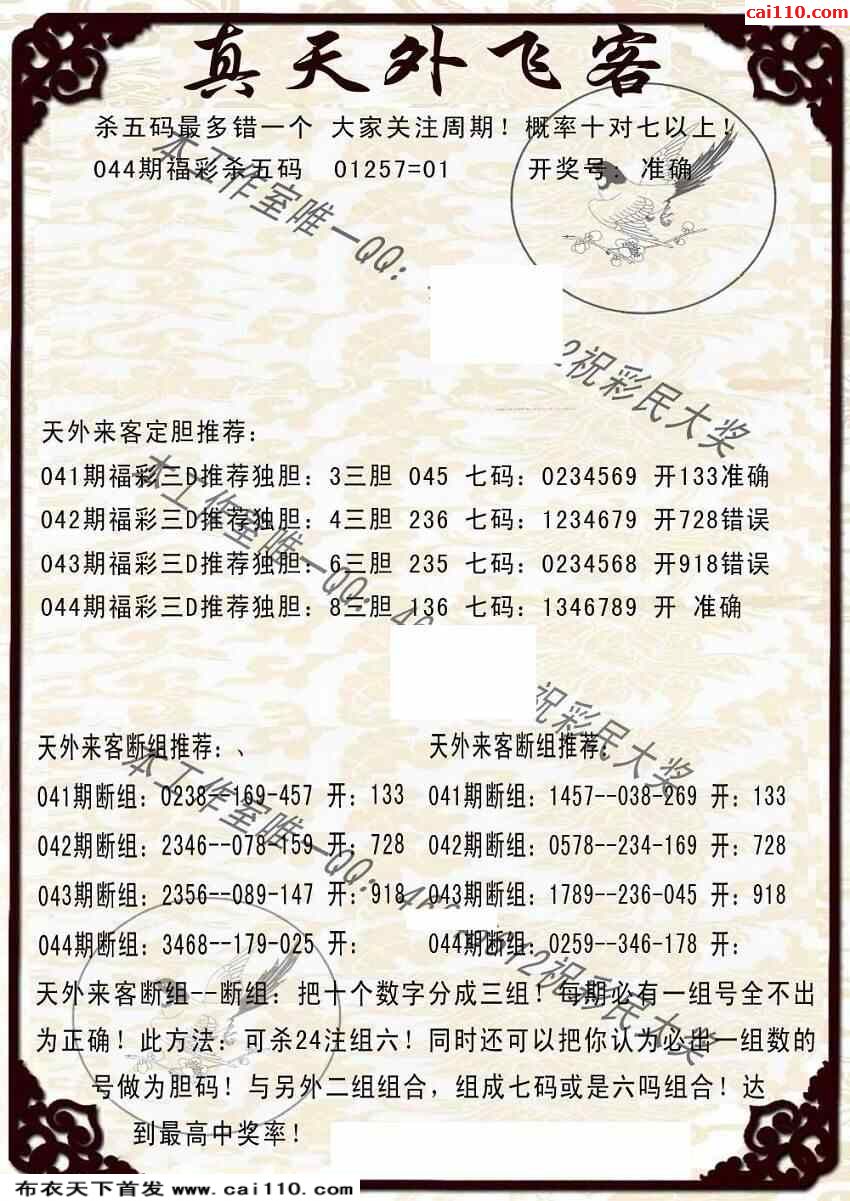 cai110.com
真天外飞客
杀五码最多错一个 大家关注周期！概率十对七以上！
044期福彩杀五码 01257=01 开奖号：准确
本工作室唯一QQ：
2祝彩民大奖
天外来客定胆推荐：
041期福彩三D推荐独胆：3三胆 045 七码：0234569 开133准确
042期福彩三D推荐独胆：4三胆 236 七码：1234679 开728错误
043期福彩三D推荐独胆：6三胆 235 七码：0234568 开918错误
044期福彩三D推荐独胆：8三胆 136 七码：1346789 开 准确
本工作室唯一QQ：
祝彩民大奖
天外来客断组推荐：、 天外来客断组推荐：
041期断组：0238--169-457 开：133 041期断组：1457--038-269 开：133
042期断组：2346--078-159 开：728 042期断组：0578--234-169 开：728
043期断组：2356--089-147 开：918 043期断组：1789--236-045 开：918
044期断组：3468--179-025 开： 044期断组：0259--346-178 开：
本工作室唯一QQ：
祝彩民大奖
天外来客断组--断组：把十个数字分成三组！每期必有一组号全不出
为正确！此方法：可杀24注组六！同时还可以把你认为必出一组数的
号做为胆码！与另外二组组合，组成七码或是六吗组合！达
到最高中奖率！
布衣天下首发 www.cai110.com